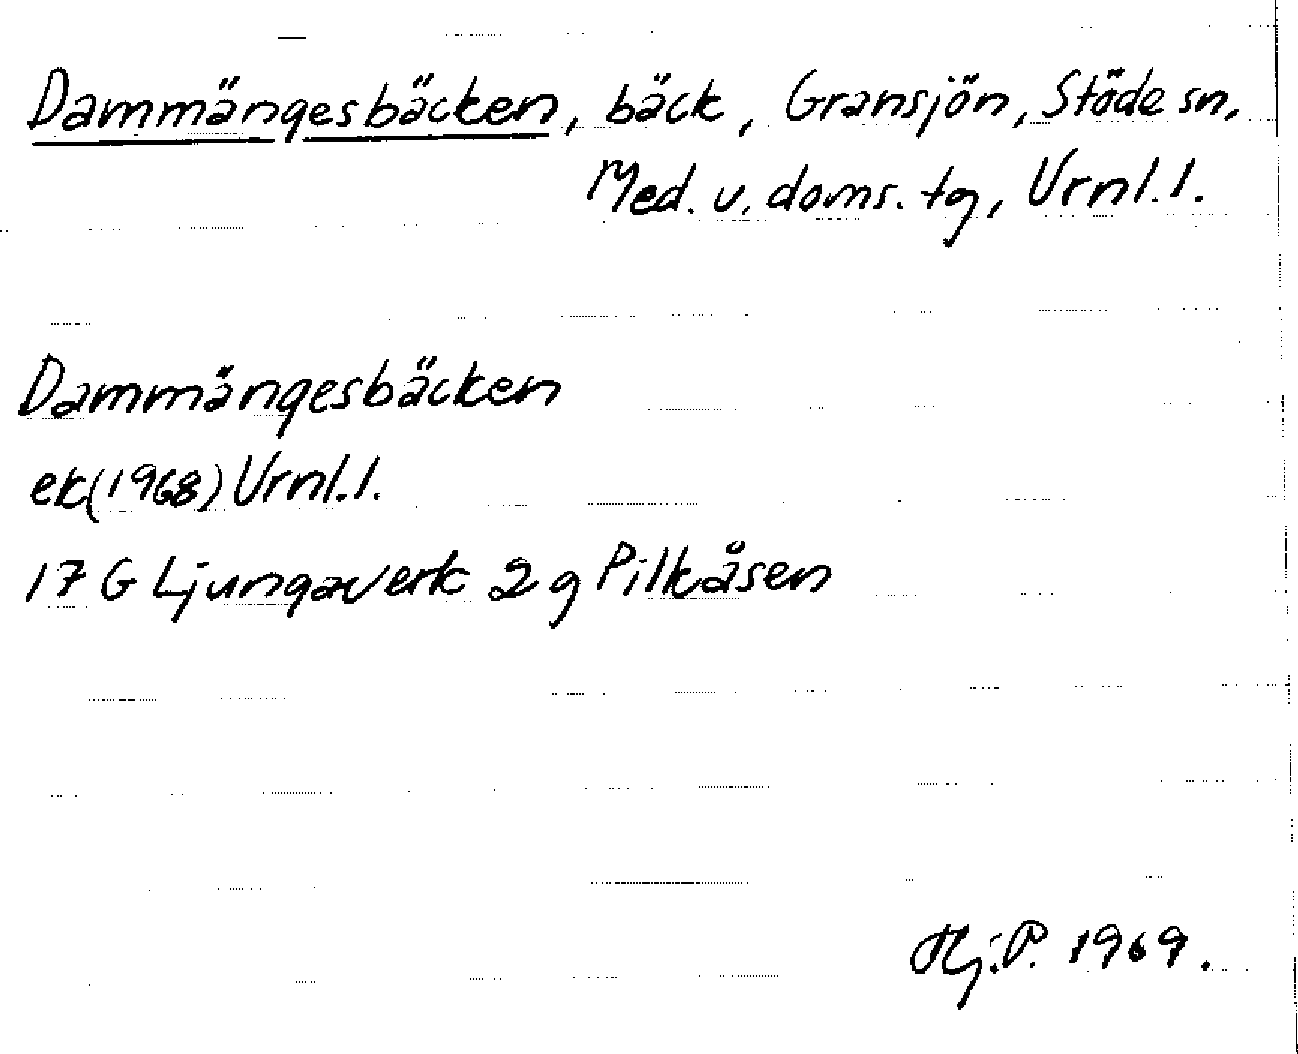 Dammängesbäcken, bäck, Gransjön, Stöde sn,
Med. v. doms. tg, Vrnl. l.
Dammängesbäcken
ek(1968) Vrnl. l.
17 G Ljungaverk 2 g Pilkåsen
Hj. P. 1969.